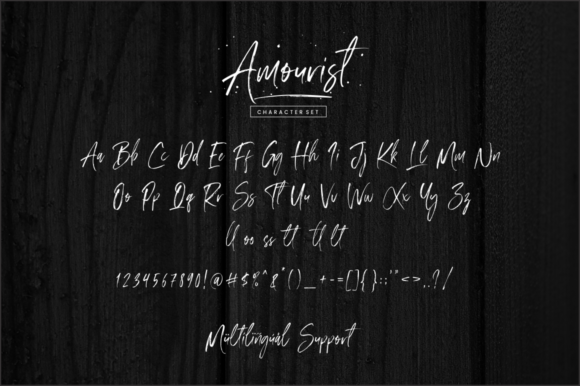 Amourist
CHARACTER SET
Aa Bb Cc Dd Ee Ff Gg Hh Ii Jj Kk Ll Mm Nn
Oo Pp Qq Rr Ss Tt Uu Vv Ww Xx Yy Zz
oo ss tt
1234567890!@#$%^&*()_+-=[]{}:;'"<>,.?/
Multilingual Support